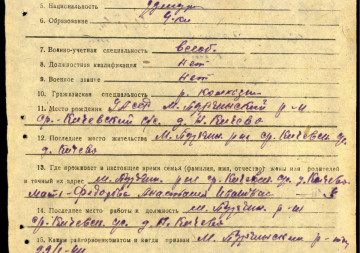 5. Национальность удмурт
6. Образование 4 кл
7. Военно-учетная специальность всеоб.
8. Должностная квалификация нет
9. Военное звание нет
10. Гражданская специальность р. колхозн
11. Место рождения УАССР М. Пургинский р-н
ср. Кечевский с/с. д. Н. Кечево
12. Последнее место жительства М. Пургин. р-н ср. Кечевск. с/с
д. Кечево
13. Где проживает в настоящее время семья (фамилия, имя, отчество) жены или родителей
и точный их адрес М. Пургин. р-н ср. Кечевск. с/с д. Кечево
мать - Федорова Анастасия
14. Последнее место работы и должность М. Пургин. р-н
ср. Кечевск. с/с. д. Н. Кечево
15. Каким райгорвоенкоматом и когда призван М. Пургинским р-